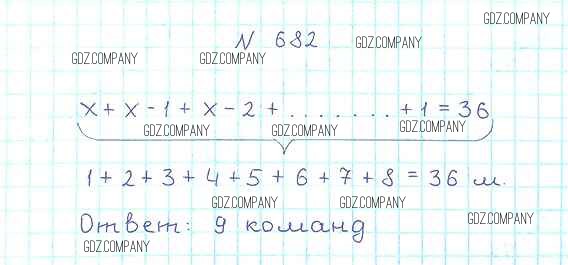 GDZ.COMPANY
N 682 GDZ.COMPANY
GDZ.COMPANY GDZ.COMPANY
x + x - 1 + x - 2 + . . . . . . . . + 1 = 36
GDZ.COMPANY GDZ.COMPANY GDZ.COMPANY
1 + 2 + 3 + 4 + 5 + 6 + 7 + 8 = 36 м.
GDZ.COMPANY GDZ.COMPANY
Ответ: 9 команд GDZ.COMPANY
GDZ.COMPANY